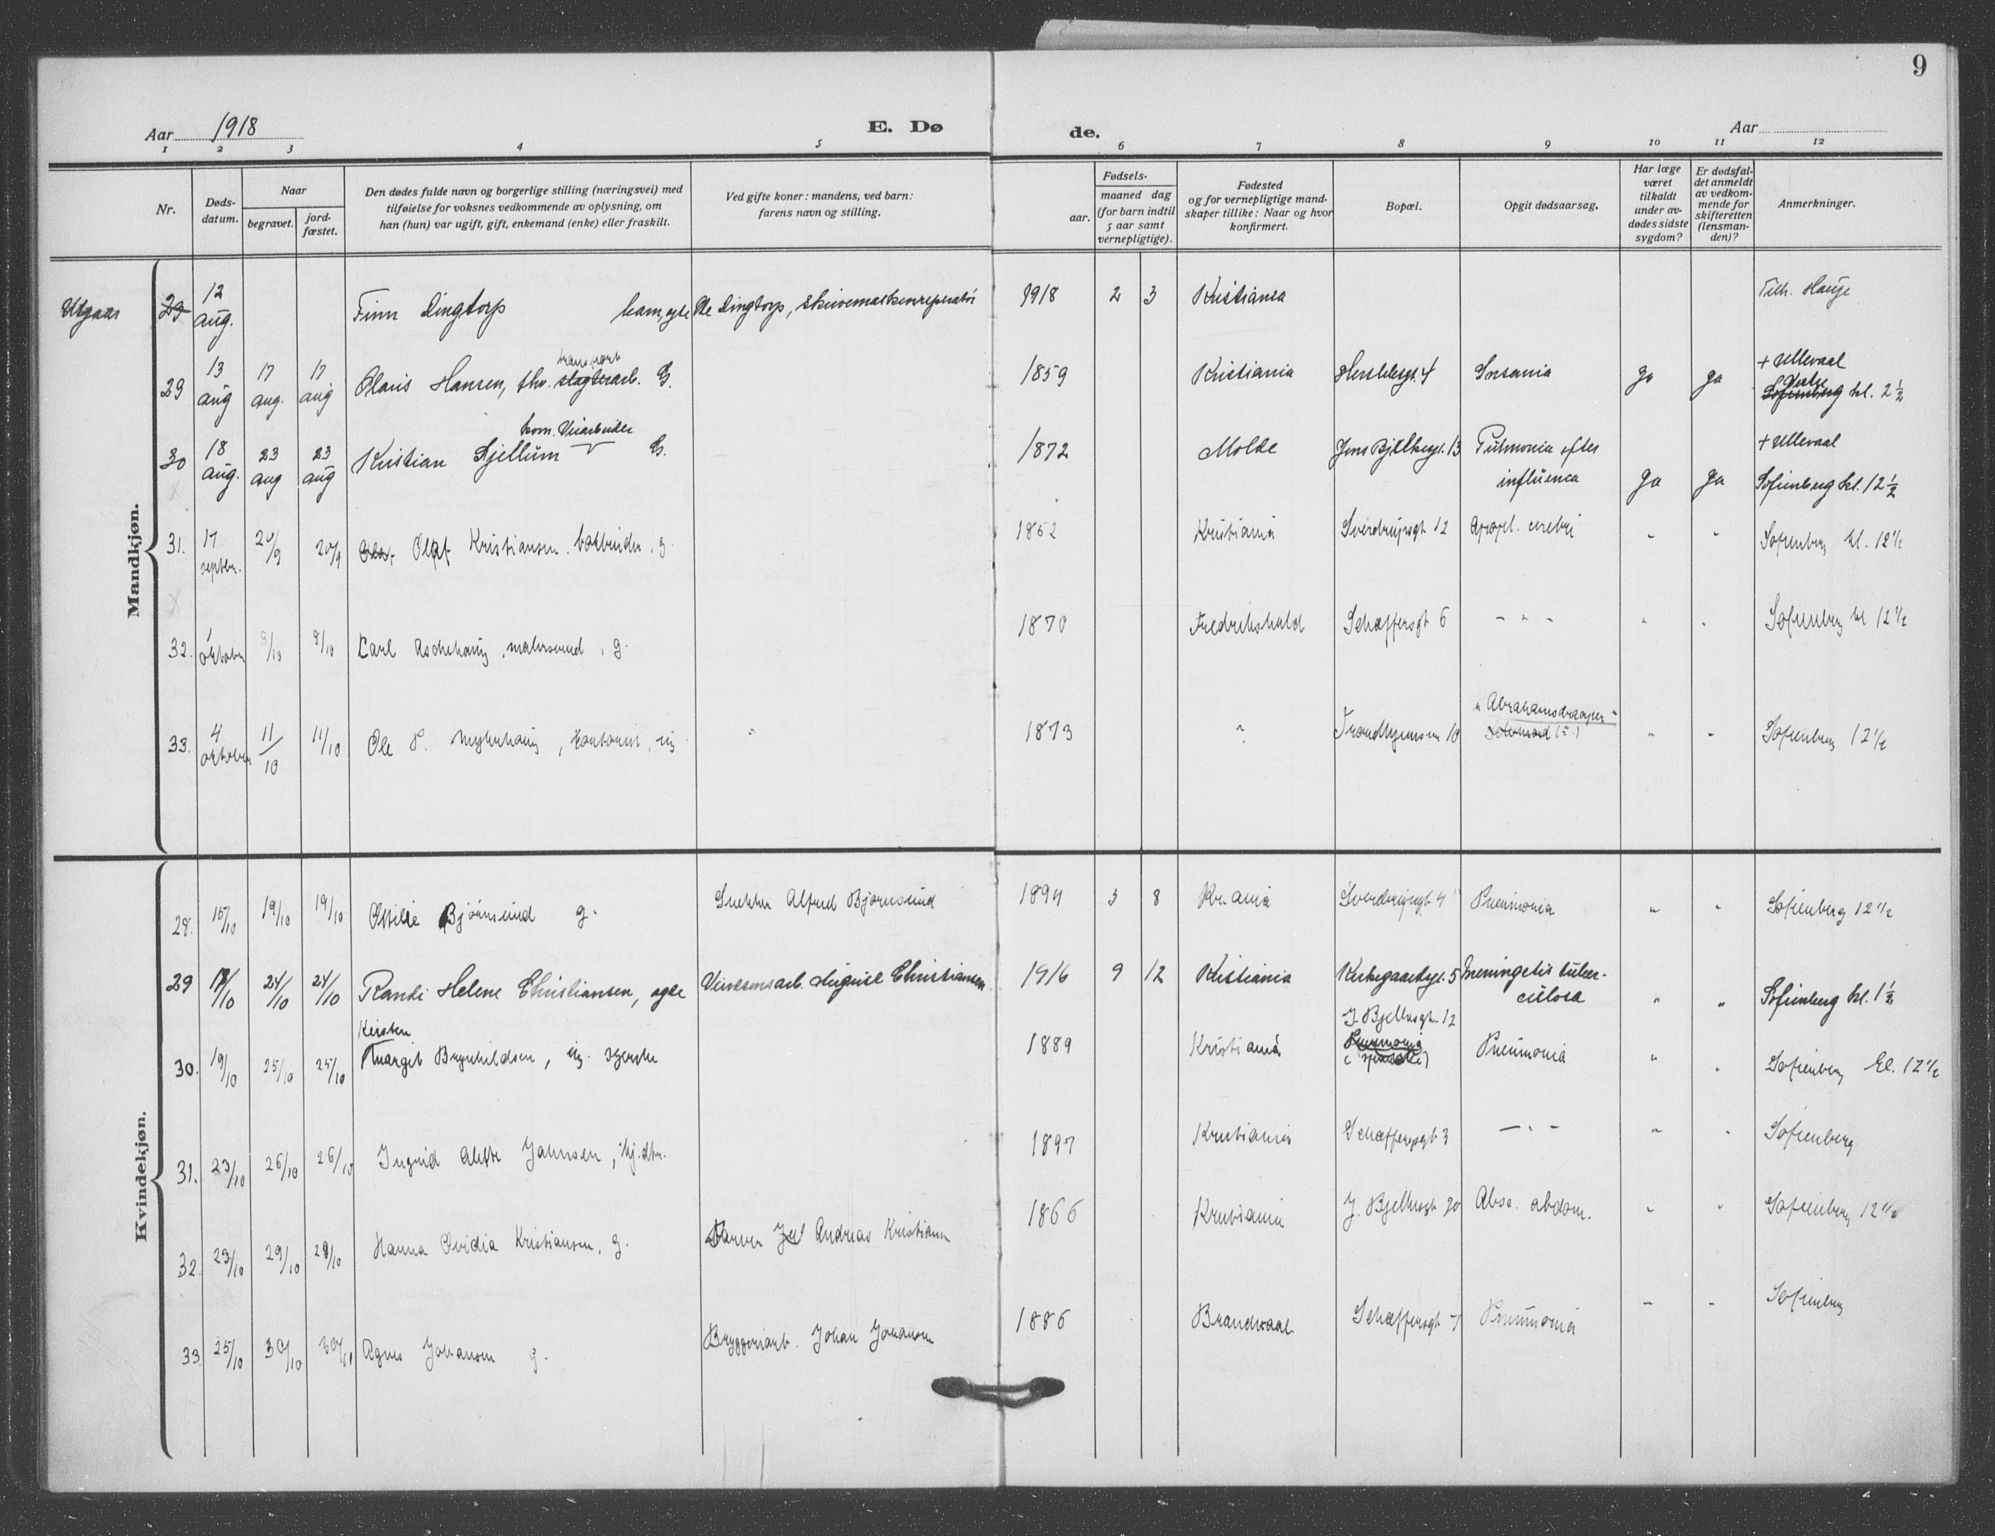 9
Aar 1918
E. Dø
de.
Aar
1 2 3 4 5 6 7 8 9 10 11 12
Nr.
Døds-
datum.
Naar
begravet.
jord-
fæstet.
Den dødes fulde navn og borgerlige stilling (næringsvei) med
tilføielse for voksnes vedkommende av oplysning, om
han (hun) var ugift, gift, enkemand (enke) eller fraskilt.
Ved gifte koner: mandens, ved barn:
farens navn og stilling.
Fødsels-
aar.
maaned dag
(for barn indtil
5 aar samt
vernepligtige).
Fødested
og for vernepligtige mand-
skaper tillike: Naar og hvor
konfirmert.
Bopæl.
Opgit dødsaarsag.
Har læge
været
tilkaldt
under av-
dødes sidste
sygdom?
Er dødsfal-
det anmeldt
av vedkom-
mende for
skifteretten
(lensman-
den)?
Anmerkninger.
Mandkjøn.
Utgaar 29 12 aug. Finn Lingtorp barn, egte Ole Lingtorp, skrivemaskinreperatør 1918 2 3 Kristiania Tilh. Hauge
transport
29 13 aug 17 aug. 17 aug Olaus Hansen, fhv. slagterarb. G. 1859 Kristiania Herslebsgt. 4 Insania ja ja + Ullevaal
Vestre
Sofienberg kl. 2 1/2
kom. Veiarbeider
30 18 aug. 23 aug 23 aug Kristian Gjellum G. 1872 Molde Jens Bjelkesgt. 13 Pulmonia efter + Ullevaal
influenca ja ja Sofienberg kl. 12 1/2
31. 17 septbr. 20/9 20/9 Olaf Kristiansen, g. 1852 Kristiania Sverdrupsgt 12 Apopl. cerebri " " Sofienberg kl. 12 1/2
32. 1 oktober 8/10 8/10 Carl Aschehoug, malersvend, g. 1870 Fredrikshald Schæffersgt 6 - " - " " Sofienberg kl 12 1/2
"Abrahamsdraaper"
33. 4 oktober 11/10 11/10 Ole P. , kontorist, ug " 1873 " Trondhjemsvn 10 " " Sofienberg 12 1/2
Kvindekjøn.
28. 15/10 19/10 19/10 Ottilie Bjørnsund g. Snekker Alfred Bjørnsund 1894 3 8 Kr.ania Sverdrupsgt 4 Pneumonia " " Sofienberg 12 1/2
29 18/10 24/10 24/10 Randi Helene Christiansen, egte Christiansen 1916 9 12 Kristiania Kirkegaardsgt. 5 meningitis tuber-
culosa " " Sofienberg kl. 1 1/2
Kirsten J. Bjelkesgt. 12
30. 19/10 25/10 25/10 Margit Brynhildsen, ug. syerske 1889 Kristiania Pneumonia Pneumonia " " Sofienberg kl. 12 1/2
31. 23/10 26/10 26/10 Ingrid Jahnsen, tj.dtr. 1897 Kristiania Schæffersgt 3 - " - " " Sofienberg
32. 23/10 29/10 29/10 Hanna Ovidia Kristiansen, g. Farver Andreas Kristiansen 1866 Kristiania J. Bjelkesgt 20 Absc. abdom. " " Sofienberg 12 1/2
33. 25/10 30/10 30/ Agnes Johansen g. Bryggeriarb. Johan Johansen 1886 Brandvaal Schæffersgt 7 Pneumonia " " Sofienberg